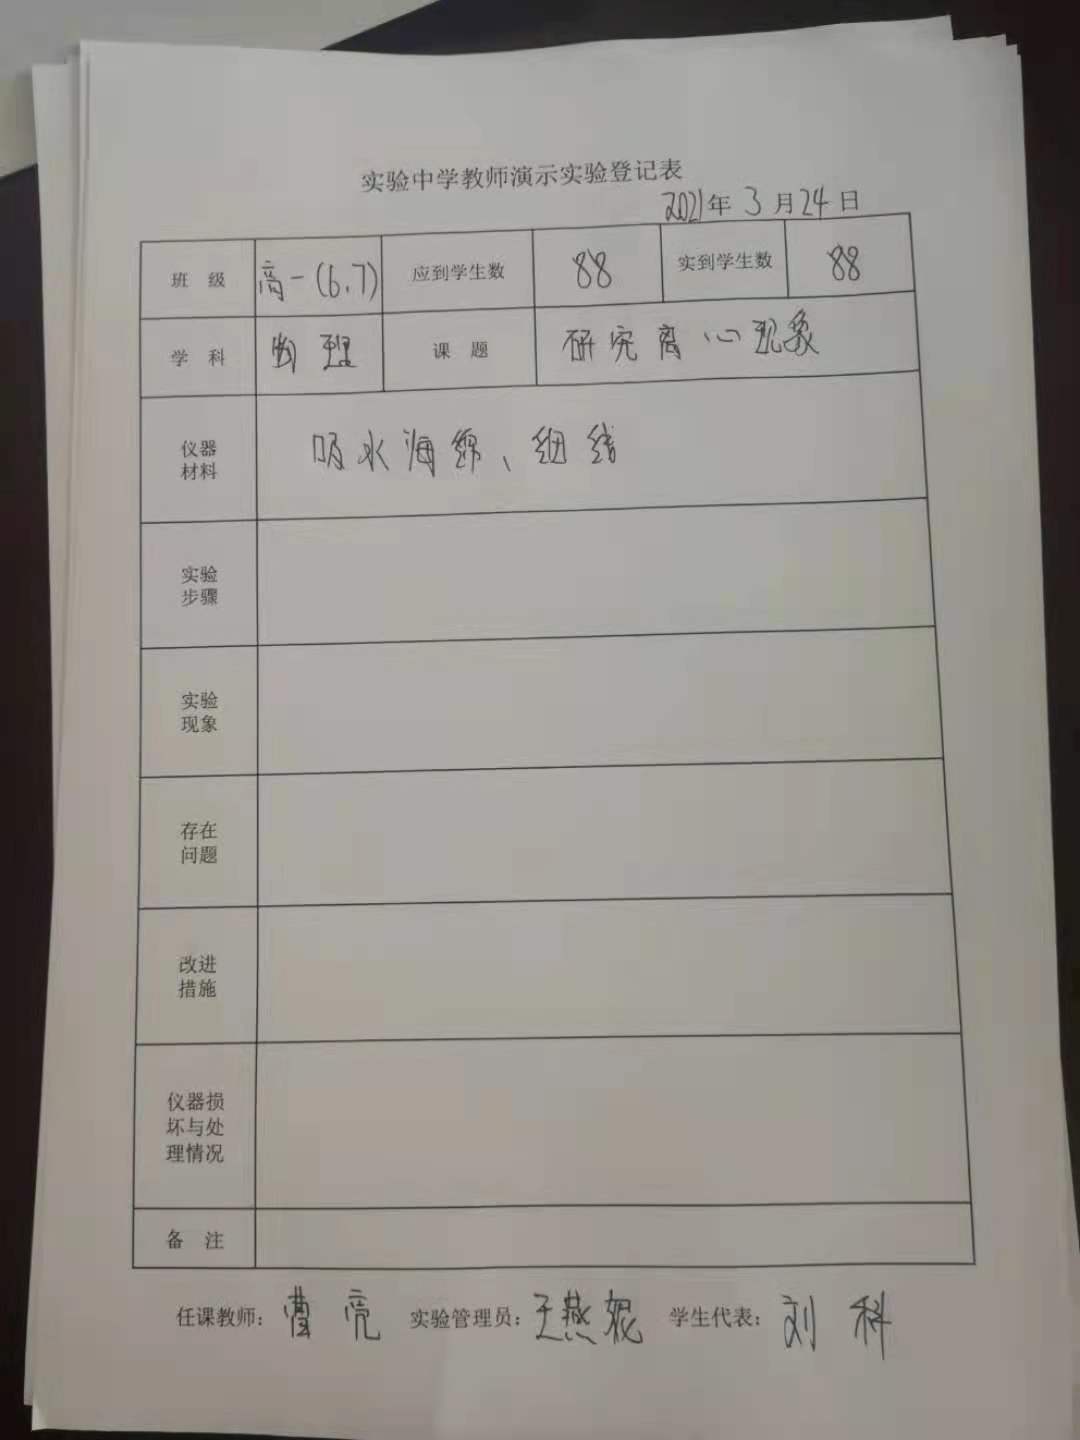 实验中学教师演示实验登记表
2021年 3 月 24 日
班 级 高一(6、7) 应到学生数 88 实到学生数 88
学 科 物理 课 题 研究离心现象
仪器
材料
吸水海绵、细线
实验
步骤
实验
现象
存在
问题
改进
措施
仪器损
坏与处
理情况
备 注
任课教师: 曹亮 实验管理员: 王燕妮 学生代表: 刘科